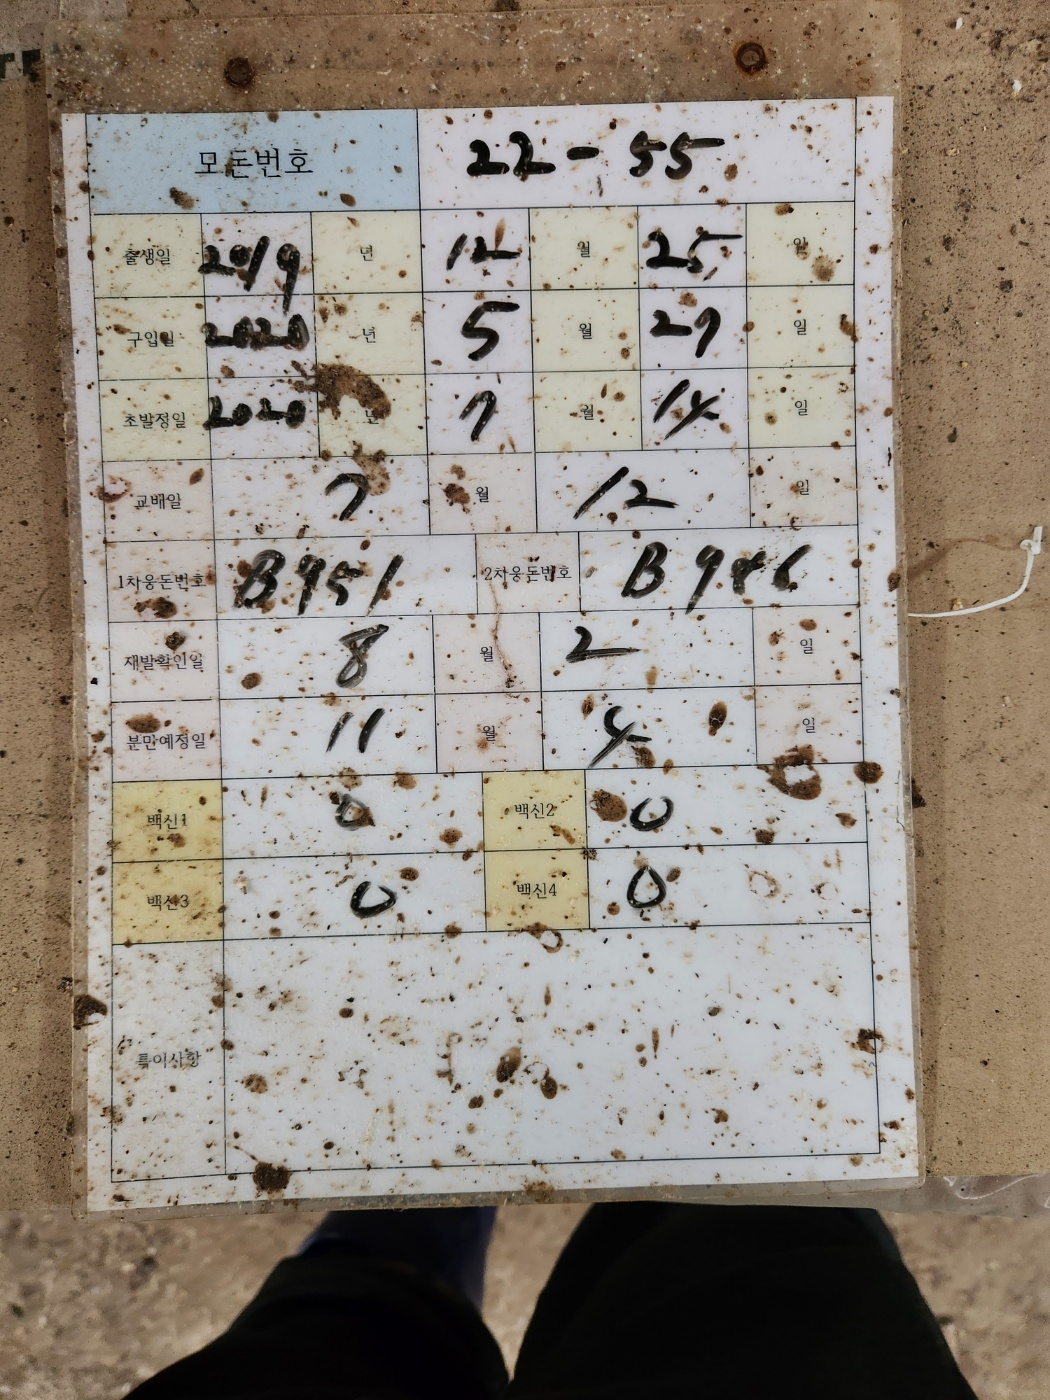 모돈번호 22-55
출생일 2019 년 12 월 25 일
구입일 2020 년 5 월 29 일
초발정일 2020 년 7 월 14 일
교배일 7 월 12 일
1차웅돈번호 B951 2차웅돈번호 B986
재발확인일 8 월 2 일
분만예정일 11 월 4 일
백신1 0 백신2 0
백신3 0 백신4 0
특이사항